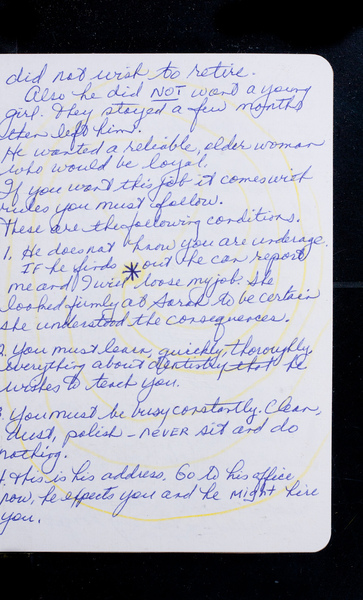 did not wish to retire.
Also he did NOT want a young
girl. They stayed a few months
then left him.
He wanted a reliable, older woman
who would be loyal.
If you want this job it comes with
rules you must follow.
These are the following conditions.
1. He does not know you are underage.
IF he finds * out he can report
me and I will loose my job. She
looked firmly at Sarah to be certain
she understood the consequences.
2. You must learn, quickly, thoroughly,
everything about dentistry that he
wishes to teach you.
3. You must be busy constantly. Clean,
dust, polish - NEVER sit and do
nothing.
4. This is his address. Go to his office
now, he expects you and he might hire
you.